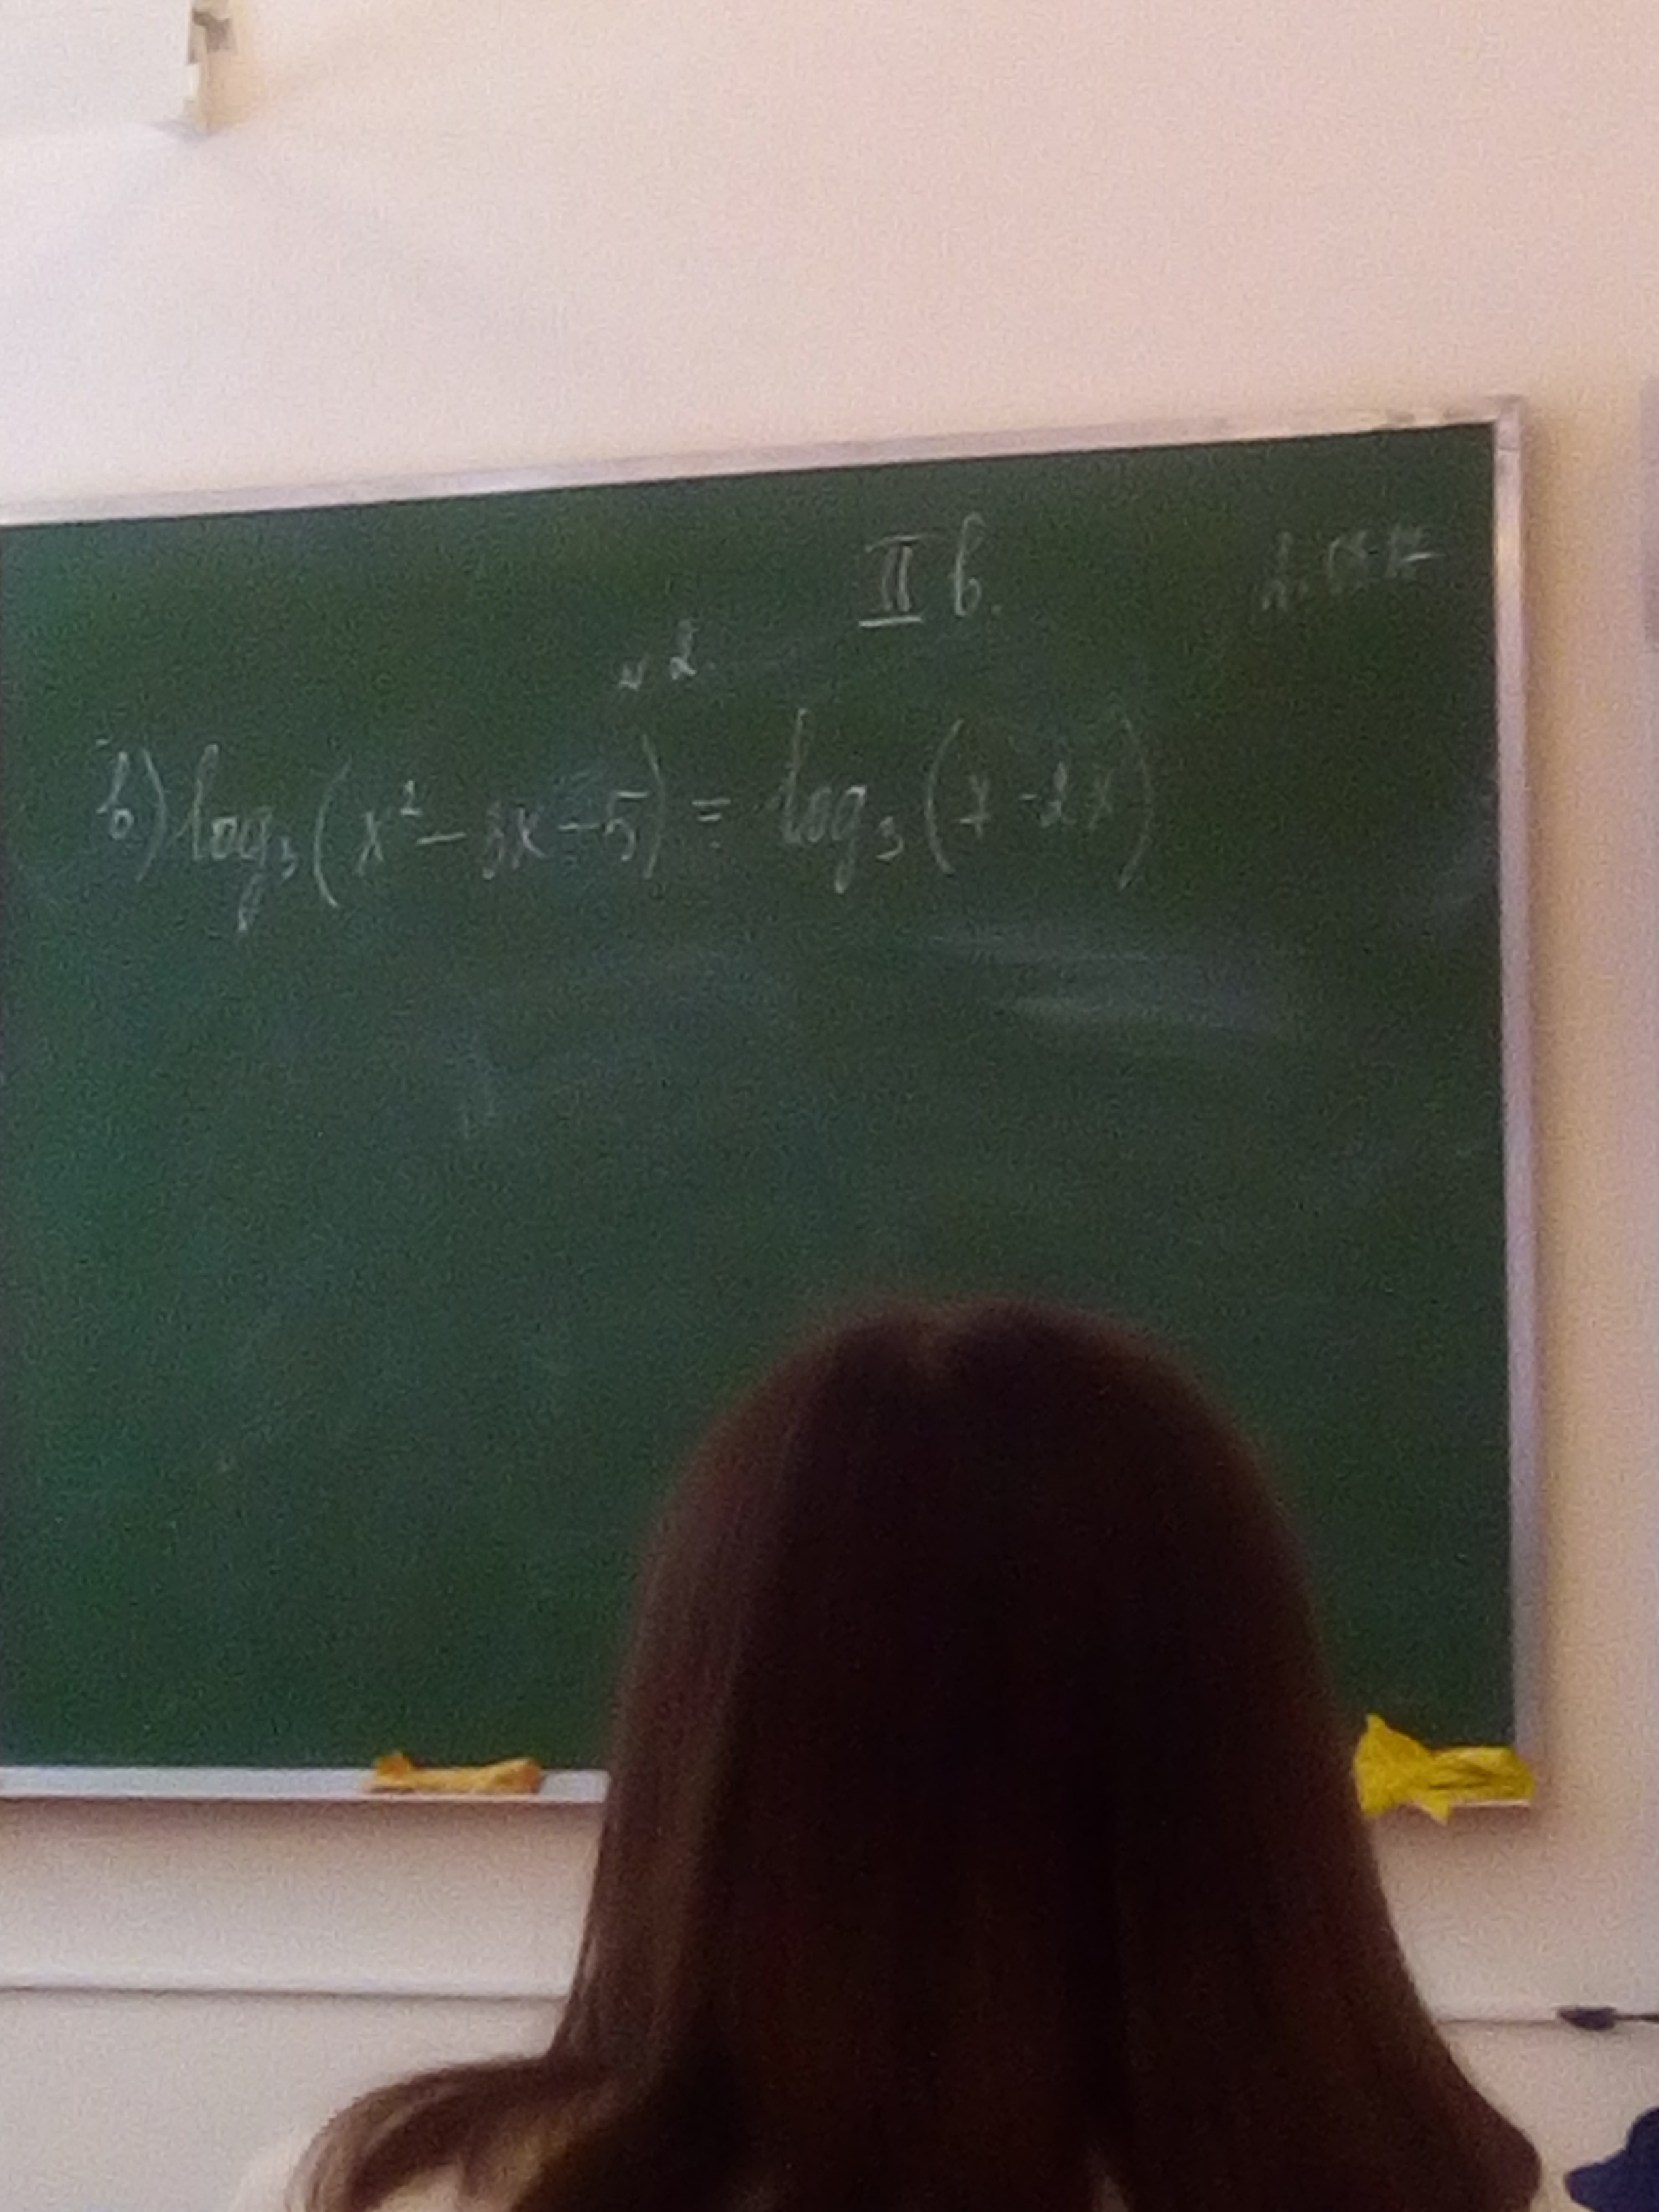 II в.
№ 2.
в) log₃(x² - 3x - 5) = log₃(7 - 2x)